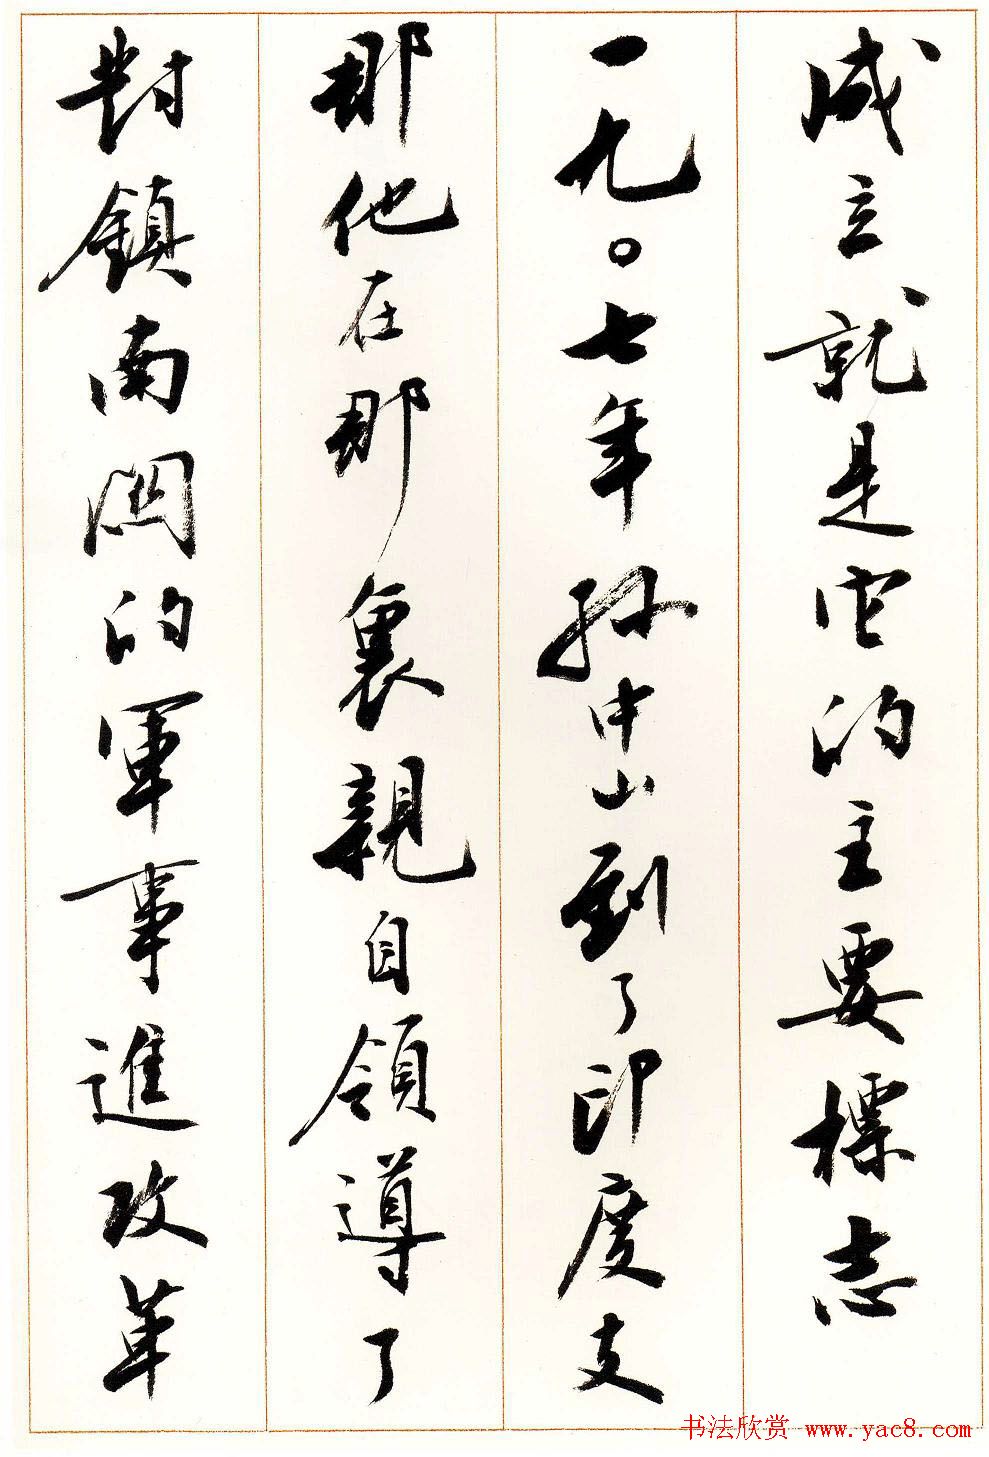 成立就是它的主要標志
一九〇七年孫中山到了印度支
那他在那裏親自領導了
對鎮南関的軍事進攻革
书法欣赏 www.yac8.com